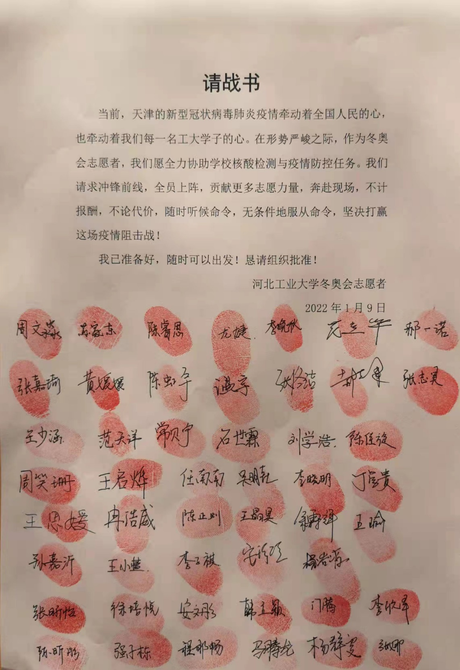 请战书
当前，天津的新型冠状病毒肺炎疫情牵动着全国人民的心，
也牵动着我们每一名工大学子的心。在形势严峻之际，作为冬奥
会志愿者，我们愿全力协助学校核酸检测与疫情防控任务。我们
请求冲锋前线，全员上阵，贡献更多志愿力量，奔赴现场，不计
报酬，不论代价，随时听候命令，无条件地服从命令，坚决打赢
这场疫情阻击战！
我已准备好，随时可以出发！恳请组织批准！
河北工业大学冬奥会志愿者
2022 年 1 月 9 日
周文淼 陈睿思 尤婕 那一诺
张嘉琦 黄媛媛 温宇 张志灵
王少涵 范天洋 常贝宁 石世霖 刘学浩
周笑珊 王启烨 任南南 李晓明
王思媛 冉浩成 陈正则 王瑜
孙嘉沂
张昕怡 门腾 李欣泽
陈昕 强子栋 程那畅